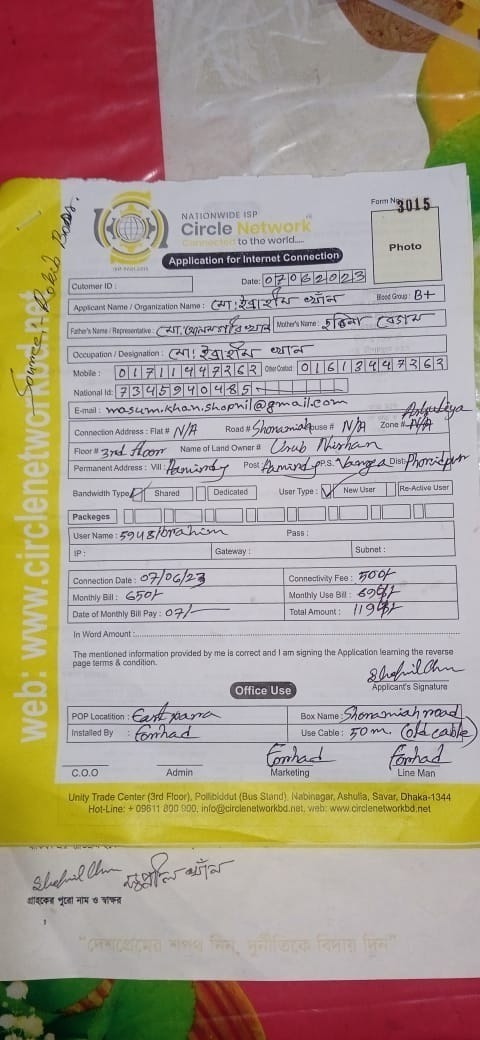 Form No. 3015
NATIONWIDE ISP
Circle Network
Connected to the world....
Photo
Application for Internet Connection
Cutomer ID :
Date: 07062023
Applicant Name / Organization Name : মো: ইব্রাহীম খাঁন
Blood Group : B+
Father's Name / Representative :
Mother's Name : বেগম
Occupation / Designation : মো: ইব্রাহীম খান
Mobile : 01711447262 Other Contact : 01613447262
National Id: 7345940485
E-mail : masum.khan.shopnil@gmail.com
Connection Address : Flat # N/A Road # Shonamiah House # N/A Zone # N/A
Floor # 3rd floor Name of Land Owner # Urub
Permanent Address : Vill : Post : P.S. Dist:
Bandwidth Type Shared Dedicated User Type : New User Re-Active User
Packeges
User Name : 5948/brahim Pass :
IP : Gateway : Subnet :
Connection Date : 07/06/23 Connectivity Fee : 500/-
Monthly Bill : 650/- Monthly Use Bill :
Date of Monthly Bill Pay : 07/- Total Amount :
In Word Amount :
The mentioned information provided by me is correct and I am signing the Application learning the reverse
page terms & condition.
Applicant's Signature
Office Use
POP Locatition : East para Box Name : Shonamiah road
Installed By : Forhad Use Cable : 50 m. (old cable)
Forhad Forhad
C.O.O Admin Marketing Line Man
Unity Trade Center (3rd Floor), Pollibiddut (Bus Stand), Nabinagar, Ashulia, Savar, Dhaka-1344
Hot-Line: + 09611 800 900, info@circlenetworkbd.net, web: www.circlenetworkbd.net
web: www.circlenetworkbd.net
গ্রাহকের পুরো নাম ও স্বাক্ষর
"দেশপ্রেমের শপথ নিন, দুর্নীতিকে বিদায় দিন"